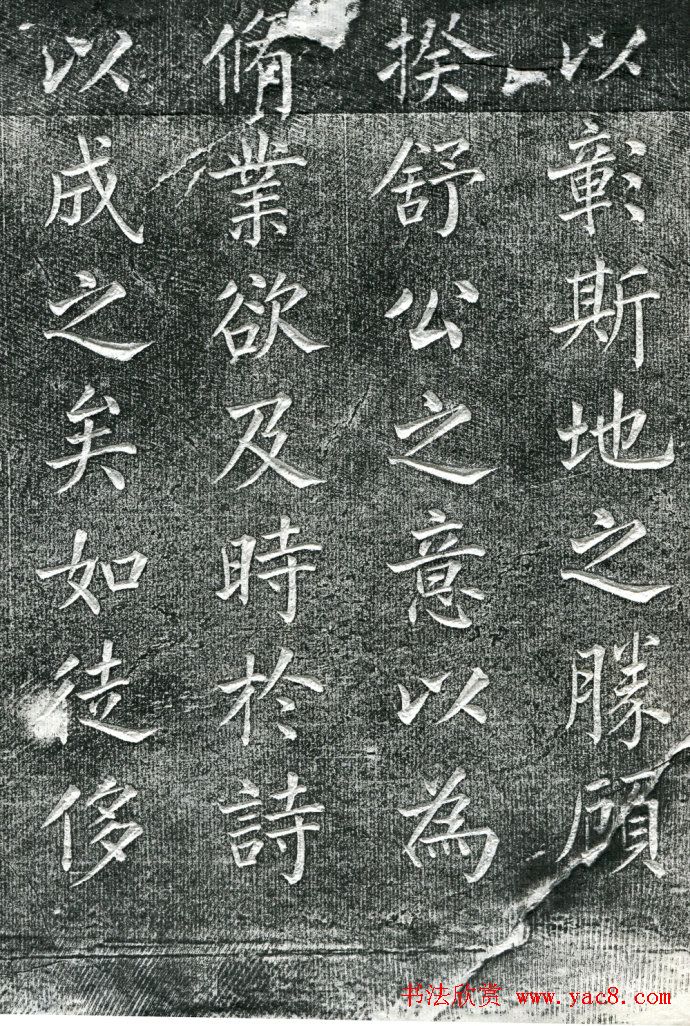 以彰斯地之勝顧
揆舒公之意以為
脩業欲及時於詩
以成之矣如徒侈
书法欣赏 www.yac8.com